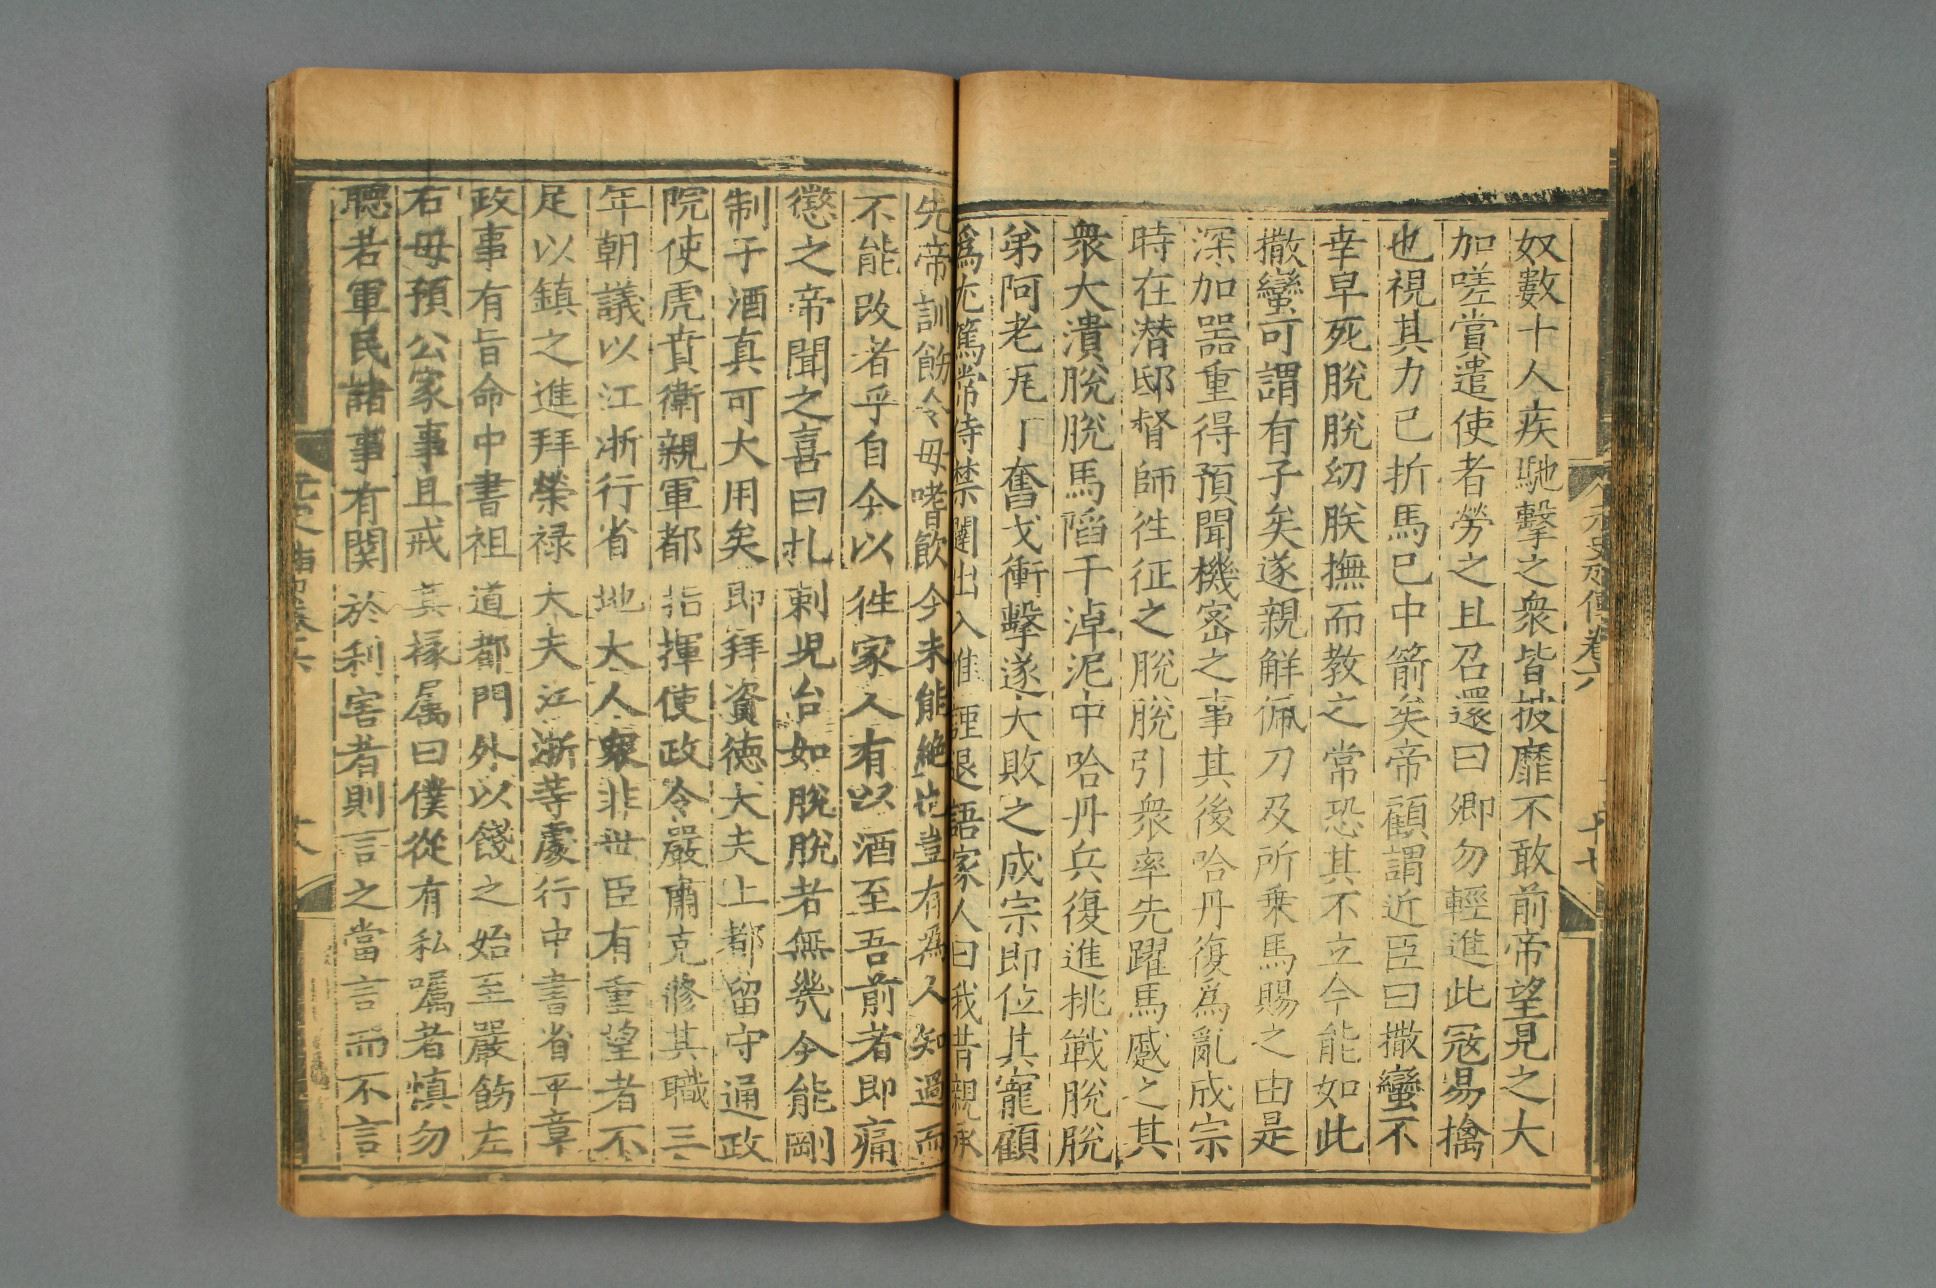 奴數十人疾馳擊之衆皆披靡不敢前帝望見之大
加嗟賞遣使者勞之且召還曰卿勿輕進此寇易擒
也視其力已折馬已中箭矣帝顧謂近臣曰撒蠻不
幸早死脫脫幼朕撫而教之常恐其不立今能如此
撒蠻可謂有子矣遂親解佩刀及所乗馬賜之由是
深加器重得預聞機密之事其後哈丹復爲亂成宗
時在潛邸督師徃征之脫脫引衆率先躍馬蹙之其
衆大潰脫脫馬陷于淖泥中哈丹兵復進挑戰脫脫
弟阿老瓦丁奮戈衝擊遂大敗之成宗即位其寵顧
爲尤篤常侍禁闥出入惟謹退語家人曰我昔親承
先帝訓飭令毋嗜飲今未能絶也豈有爲人知過而
不能改者乎自今以徃家人有以酒至吾前者即痛
懲之帝聞之喜曰扎剌兒台如脫脫者無幾今能剛
制于酒真可大用矣即拜資德大夫上都留守通政
院使虎賁衛親軍都指揮使政令嚴肅克修其職三
年朝議以江浙行省地大人衆非世臣有重望者不
足以鎮之進拜榮禄大夫江浙等處行中書省平章
政事有旨命中書祖道都門外以餞之始至嚴飭左
右毋預公家事且戒其掾属曰僕從有私囑者慎勿
聽若軍民諸事有関於利害者則言之當言而不言
元史列傳卷六
十七